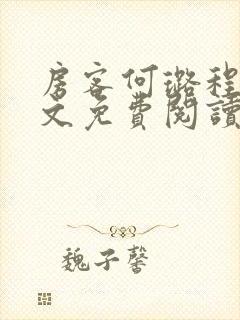 房客何璐程
文免費閱讀
魏子馨